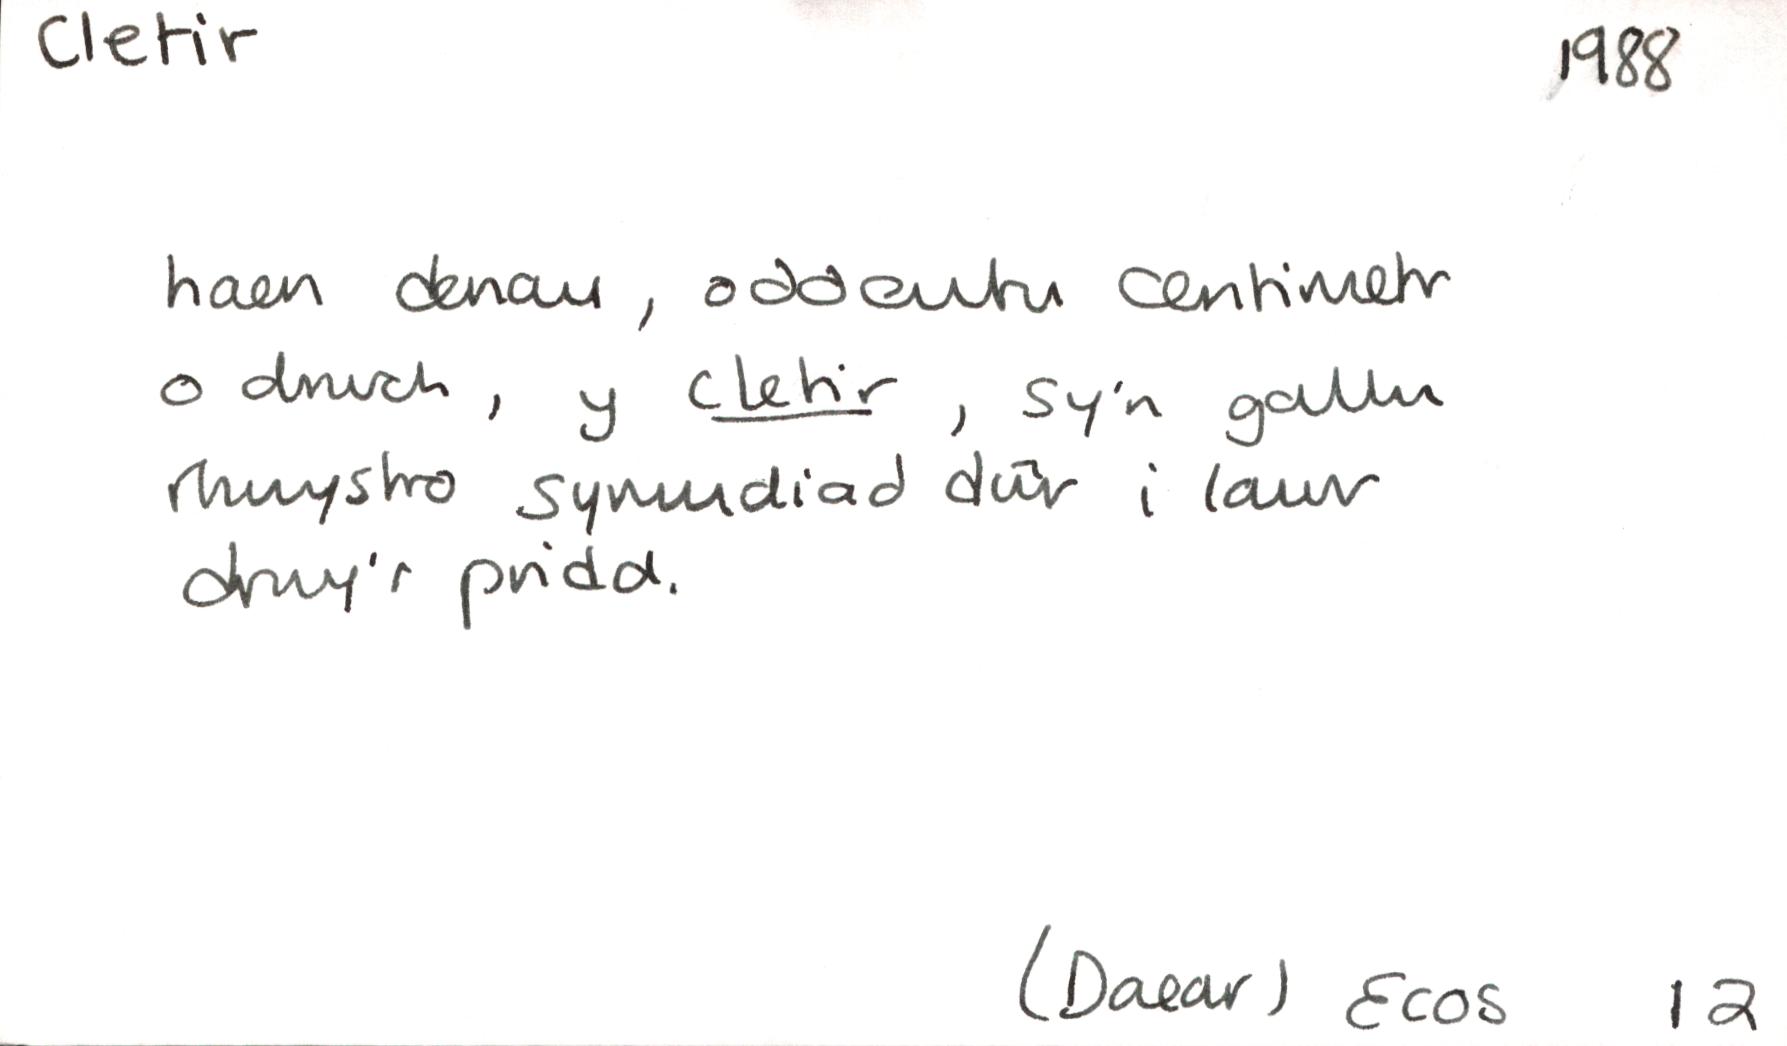 Cletir 1988
haen denau, oddeutu centimetr
o drwch, y cletir, sy'n gallu
rhwystro symudiad dŵr i lawr
drwy'r pridd.
(Daear) Ecos 12